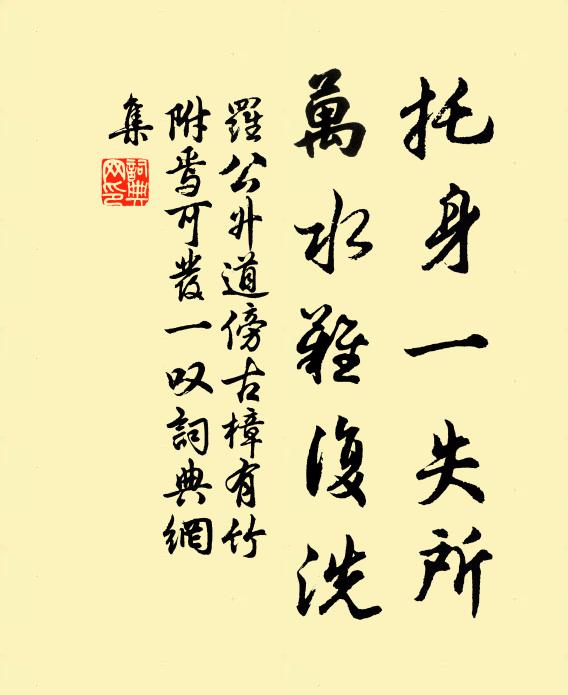 托身一失所
萬水難復洗
羅公外道傍古樟有竹
附焉可發一叹詞典網
集
詞典
网印